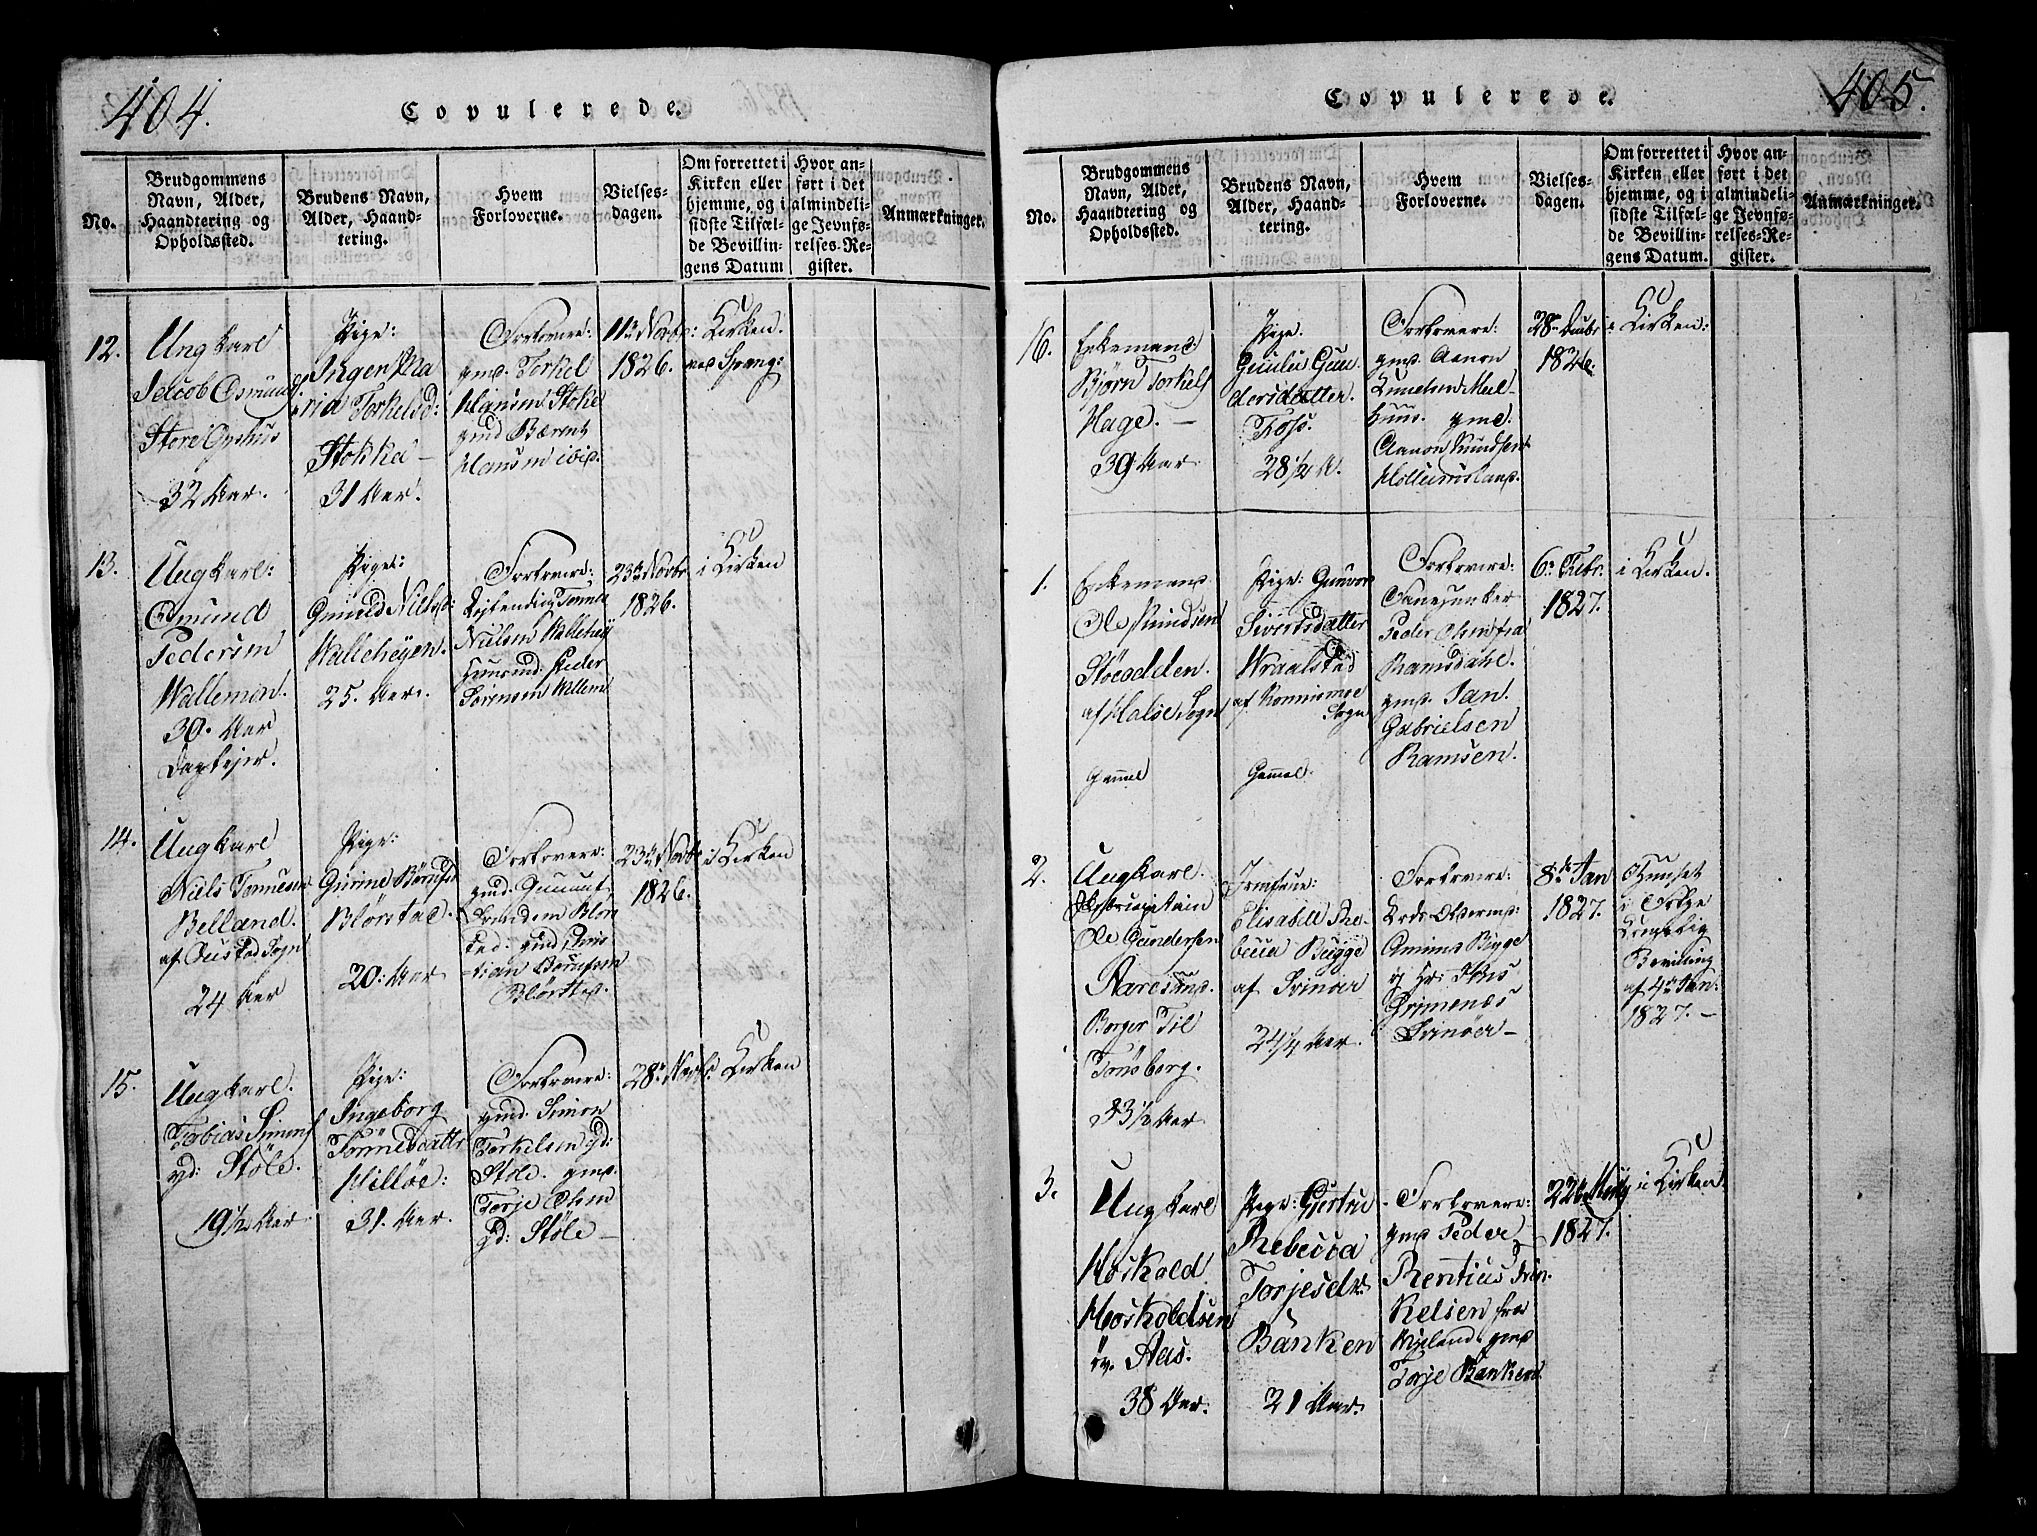 404.
Copulerede.
No.
Brudgommens
Navn, Alder,
Haandtering og
Opholdssted.
Brudens Navn,
Alder, Haand-
tering.
Hvem
Forloverne.
Vielses-
dagen.
Om forrettet i
Kirken eller
hjemme, og i
sidste Tilfæl-
de Bevillin-
gens Datum
Hvor an-
ført i det
almindeli-
ge Jevnfø-
relses-Re-
gister.
Anmærkninger.
12.
Ungkarl
Jacob Osmunds
Store
32 Aar.
Pige:
Ingen Ma
ria Torkelsd:
Stokka
31 Aar.
Forlovere:
gmd. Torkel
Hansen Stokke
gmd Bærent
Hansen ibid.
11te Novbr:
1826.
i Kirken.
13.
Ungkarl:
Osmund
Pedersen
Wallemon.
30. Aar
Pige:
Gunild Nielsd:
Walleheyen.
25. Aar.
Forlovere:
Tønnes
Nielsen Wallehey
Huusmd: Peder
Sørensen
23de Novbr
1826.
i Kirken
14.
Ungkarl
Niels Tønnesen
Belland.
af Oustad Sogn
24 Aar
Pige:
Gurine Børufsd
Blørstad.
20: Aar
Forlovere:
gmd: Gunuuf
Blør
stad: gmd Chris
tian Børufsen
Blørstad.
23de Novbr
1826.
i Kirken
15.
Ungkarl.
Tobias Simons
gd: Støle.
19½ Aar
Pige:
Ingeborg
Tønnesdatter
Hilløe:
31. Aar.
Forlovere:
gmd. Simon
Torkelsen gd:
Støle. gmd.
Torje Olsen
gd: Støle
28de Novbr.
i Kirken
405.
Copulerede.
No.
Brudgommens
Navn, Alder,
Haandtering og
Opholdssted.
Brudens Navn,
Alder, Haand-
tering.
Hvem
Forloverne.
Vielses-
dagen.
Om forrettet i
Kirken eller
hjemme, og i
sidste Tilfæl-
de Bevillin-
gens Datum.
Hvor an-
ført i det
almindeli-
ge Jevnfø-
relses-Re-
gister.
Anmærkninger.
16.
Enkemand
Bjørn Torkels
Hage.
39 Aar
Pige:
Gunild Gun
dersdatter.
Foss.
28½ A.
Forlovere:
gmd. Aanon
Knudsen
gmd.
Aanon Knudsen
28de Decbr
1826:
i Kirken:
1.
Enkemand
Ole Knudsen
Støodden.
af Halse Sogn
gammel
Pige: Gunvor
Sivertsdatter
Wraalstad
af
Sogn
Gammel.
Forlovere:
Fanejunker
Peder Olsen fra
Ramsdahl.
gmd. Jan
Gabrielsen
Ramsen.
6te Febr.
1827.
i Kirken.
2.
Ungkarl.
Skibscapitain
Ole Gundersen
Aaresund.
Borger Til
Tønsberg.
33½ Aar
Jomfrue:
Elisabell Re-
becca Bugge
af Svinøer
24¼ Aar.
Forlovere:
Lods Olderma:
Bugge
og Hr:
Grimenæs
Svinøer
8de Jan
1827.
i Huuset
i Følge
Kongelig
Bevilling
af 4de Jan:
1827.
3.
Ungkarl
Hoskold
Hoskoldsen
øv. Aas.
38 Aar.
Pige: Gjertru
Rebecca
Torjesdtr.
Banken
21 Aar.
Forlovere:
gmd Peder
Rentius
Kelsen fra
gmd
Torje Banken
22de
1827.
i Kirken.